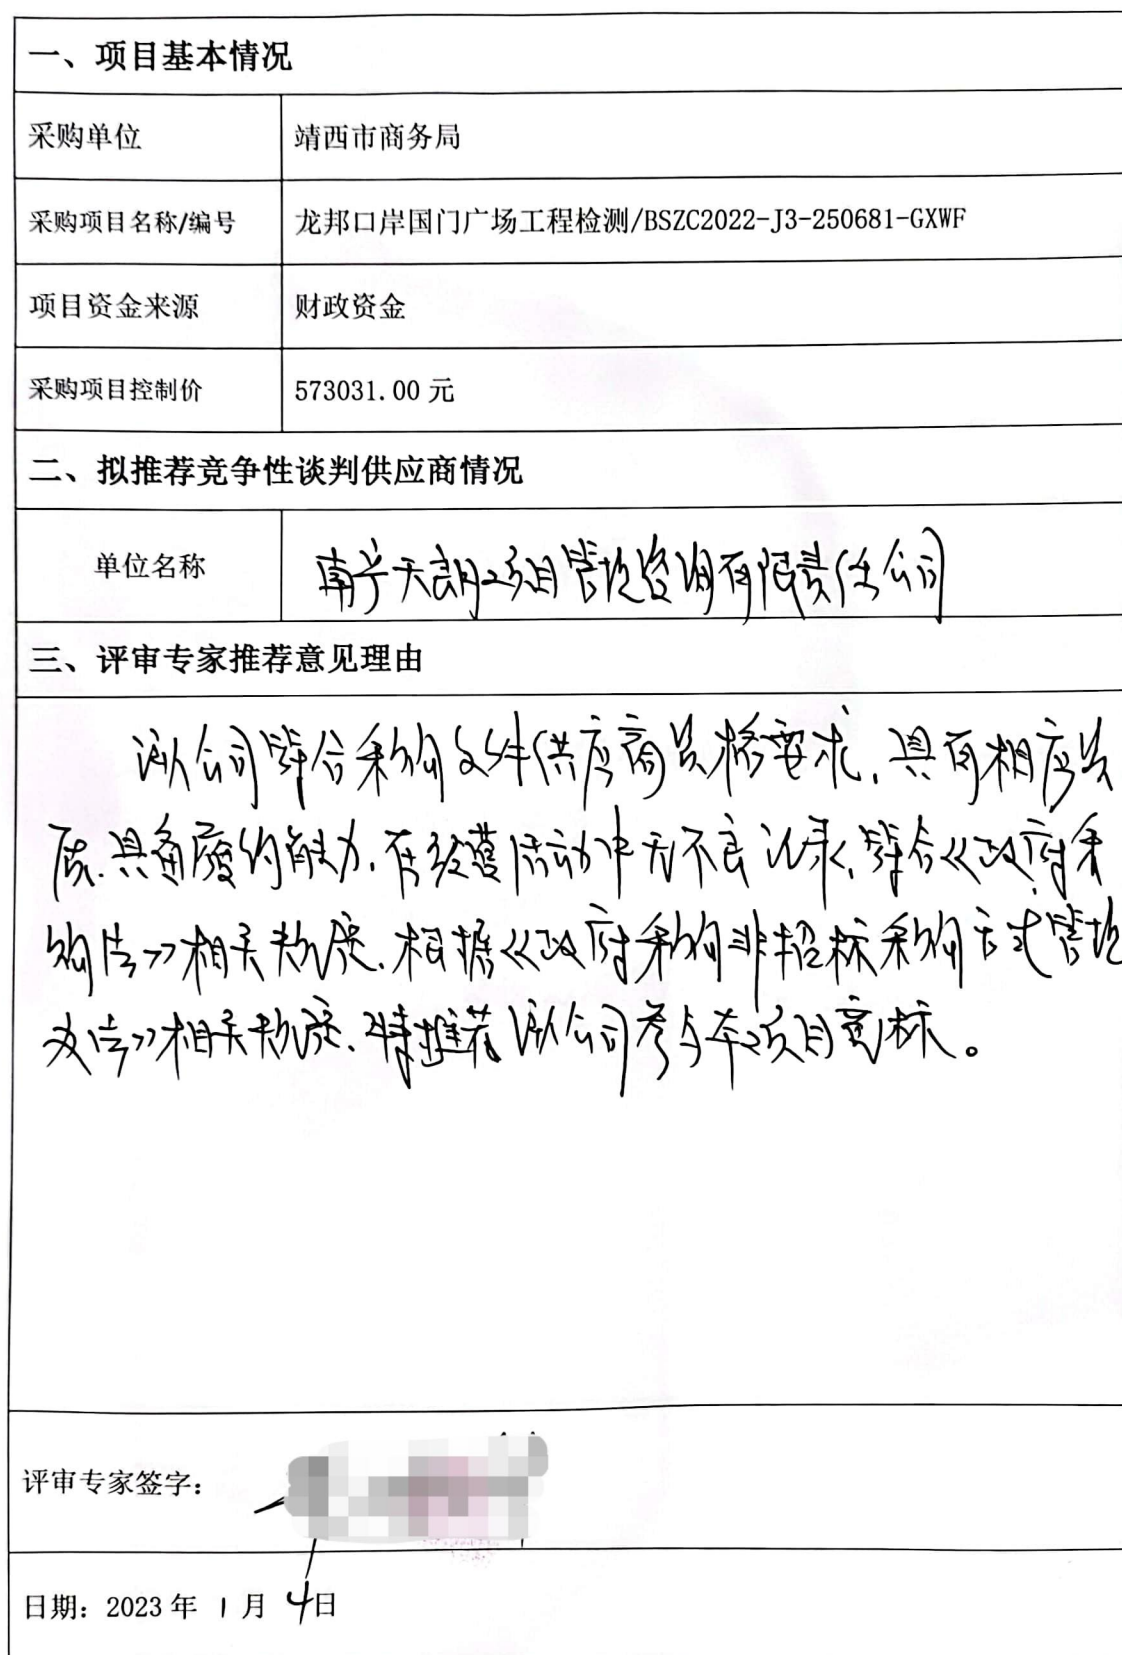 一、项目基本情况
采购单位 靖西市商务局
采购项目名称/编号 龙邦口岸国门广场工程检测/BSZC2022-J3-250681-GXWF
项目资金来源 财政资金
采购项目控制价 573031.00 元
二、拟推荐竞争性谈判供应商情况
单位名称 南宁天朗项目管理咨询有限责任公司
三、评审专家推荐意见理由
该公司符合采购文件供应商资格要求,具有相应资
质,具备履约能力,在经营活动中无不良记录,符合《政府采
购法》相关规定,根据《政府采购非招标采购方式管理
办法》相关规定,特推荐该公司参与本项目竞标。
评审专家签字:
日期: 2023 年 1 月 4日